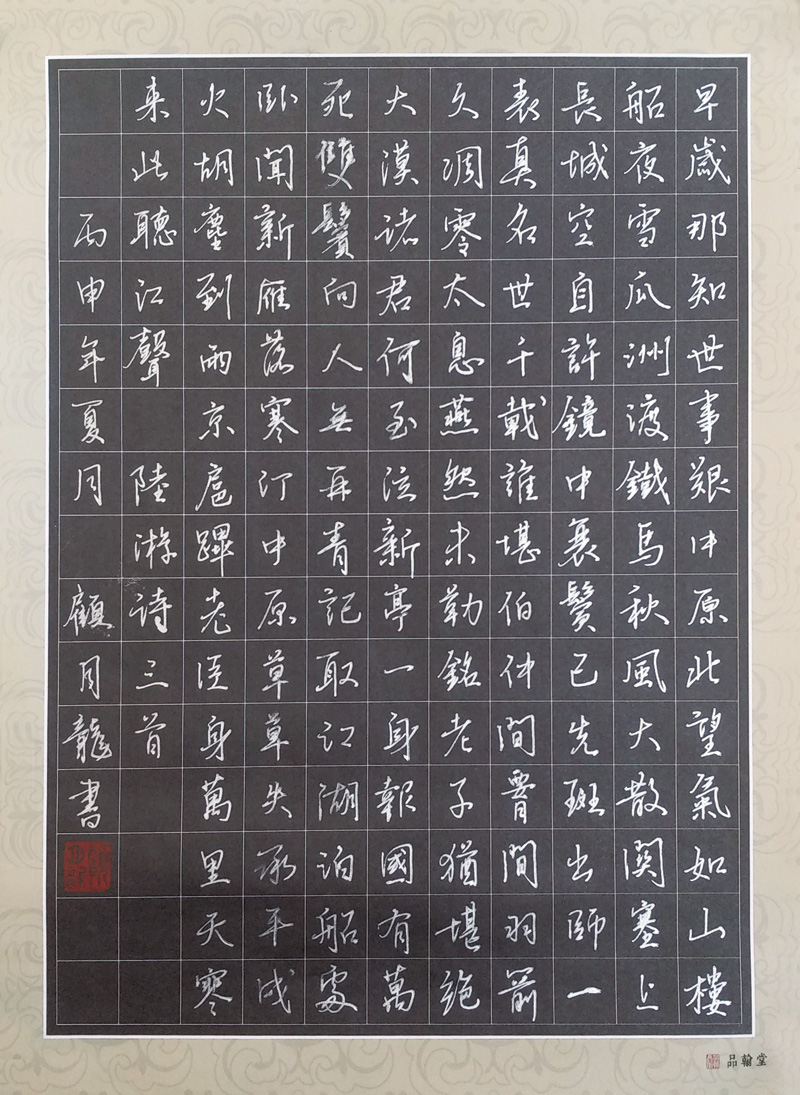 早歲那知世事艱中原北望氣如山樓
船夜雪瓜洲渡鐵馬秋風大散關塞上
長城空自許鏡中衰鬢已先斑出師一
表真名世千載誰堪伯仲間胷間羽箭
久凋零太息燕然未勒銘老子猶堪絕
大漠諸君何至泣新亭一身報國有萬
死雙鬢向人無再青記取江湖泊船處
臥聞新雁落寒汀中原草草失承平戍
火胡塵到兩京扈蹕老臣身萬里天寒
来此聽江聲 陸游詩三首
丙申年夏月 顧月龍書
品翰堂